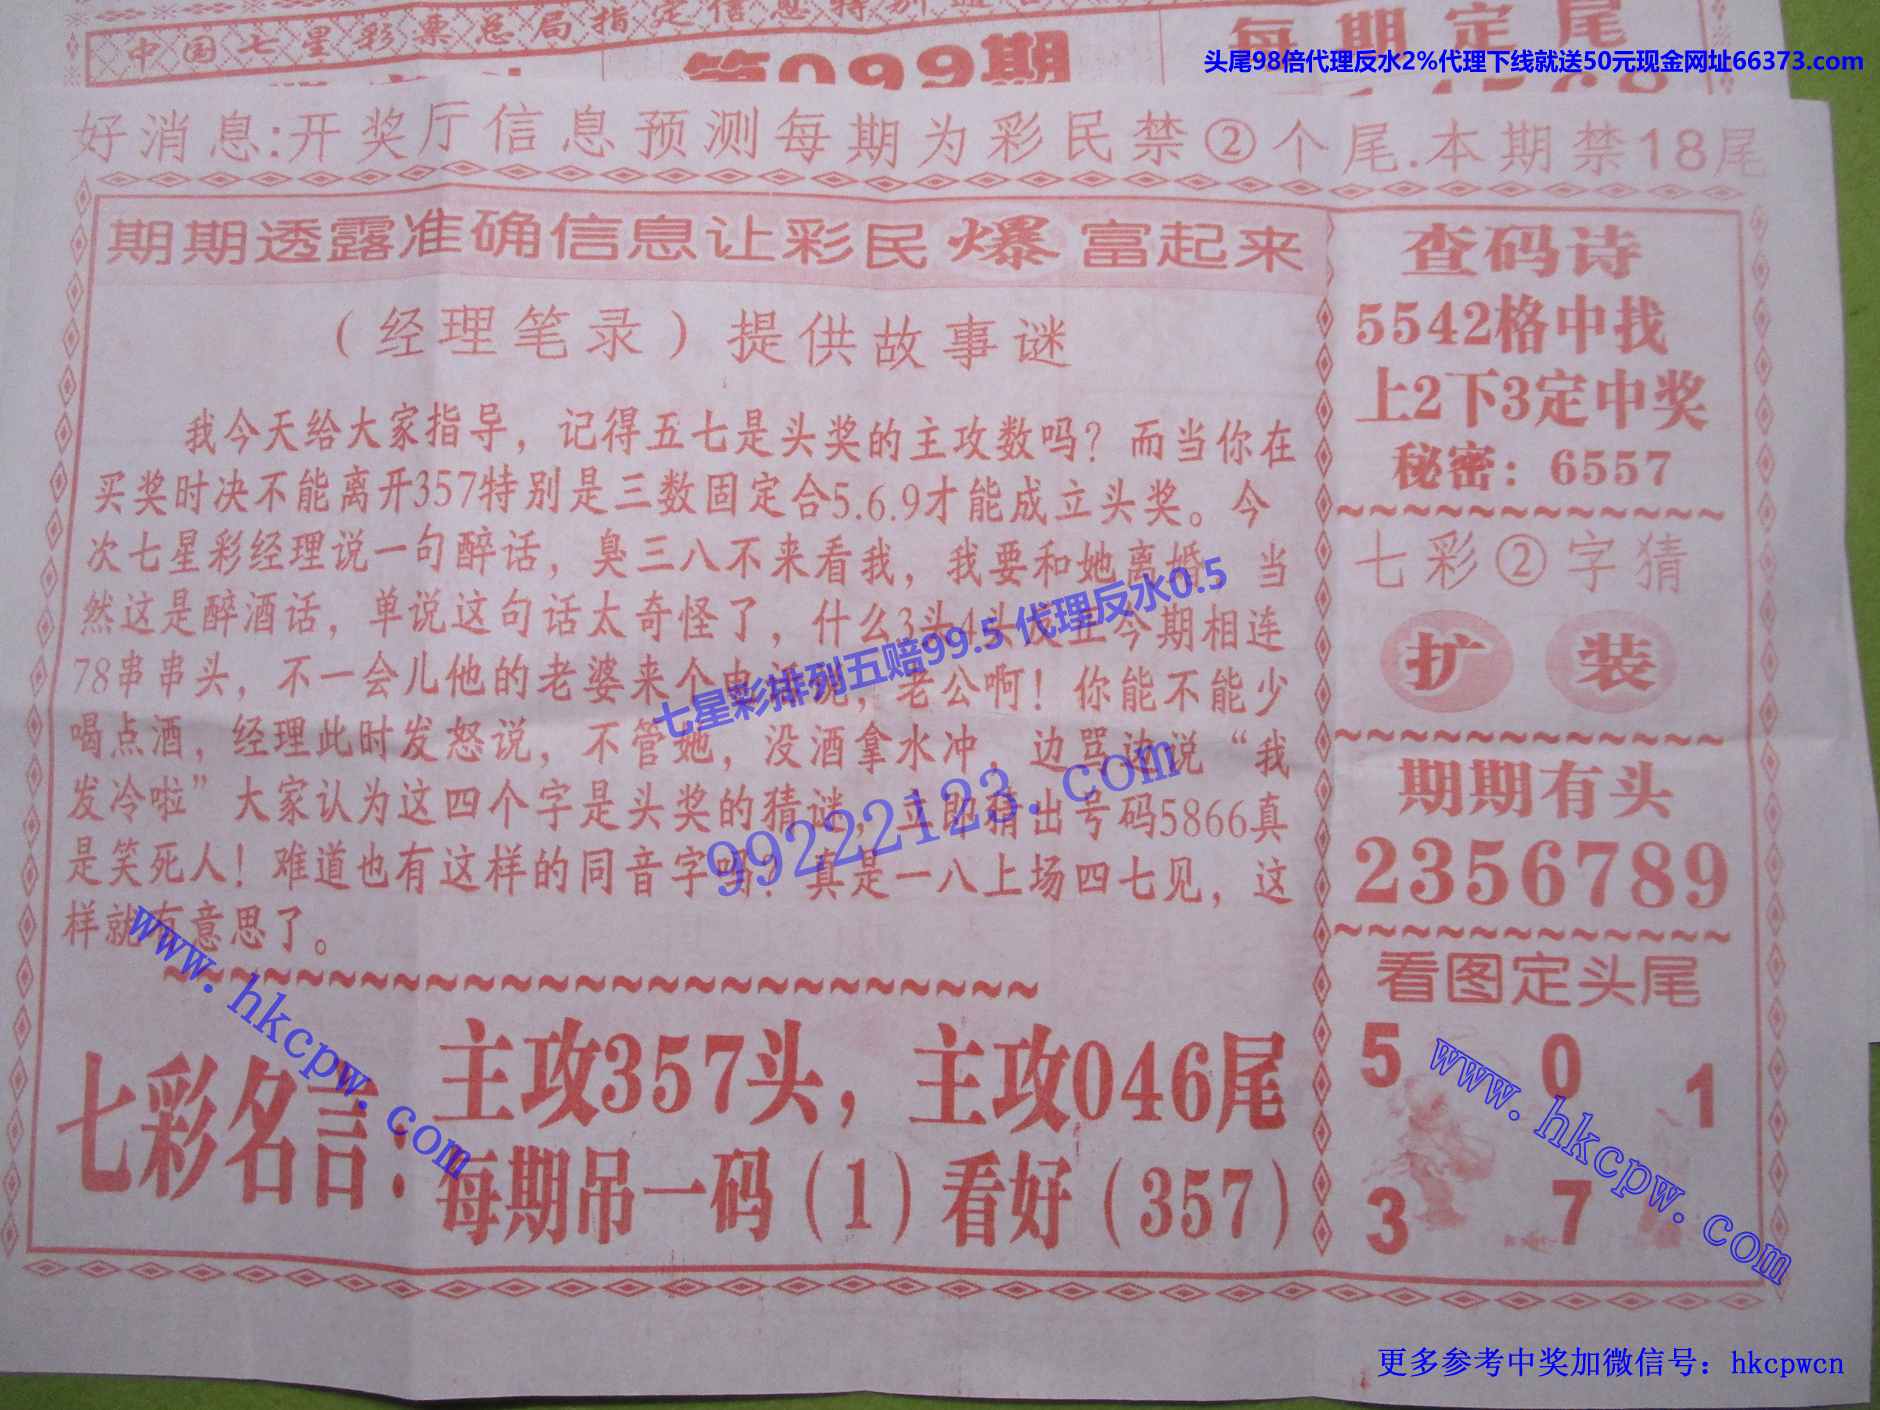 中国七星彩票总局指定信息特别
第099期
每期定尾
头尾98倍代理反水2%代理下线就送50元现金网址66373.com
好消息:开奖厅信息预测每期为彩民禁②个尾.本期禁18尾
期期透露准确信息让彩民爆富起来
（经理笔录）提供故事谜
我今天给大家指导，记得五七是头奖的主攻数吗？而当你在
买奖时决不能离开357特别是三数固定合5.6.9才能成立头奖。今
次七星彩经理说一句醉话，臭三八不来看我，我要和她离婚 当
然这是醉酒话，单说这句话太奇怪了，什么3头4头 今期相连
78串串头，不一会儿他的老婆来个电话说，老公啊！你能不能少
喝点酒，经理此时发怒说，不管她，没酒拿水冲，边骂边说“我
发冷啦”大家认为这四个字是头奖的猜谜，立即猜出号码5866真
是笑死人！难道也有这样的同音字吗？真是一八上场四七见，这
样就有意思了。
七彩名言：
主攻357头，主攻046尾
每期吊一码（1）看好（357）
查码诗
5542格中找
上2下3定中奖
秘密：6557
七彩②字猜
扩 装
期期有头
2356789
看图定头尾
5 0 1
3 7
七星彩排列五赔99.5 代理反水0.5
99222123.com
www.hkcpw.com
www.hkcpw.com
更多参考中奖加微信号：hkcpwcn